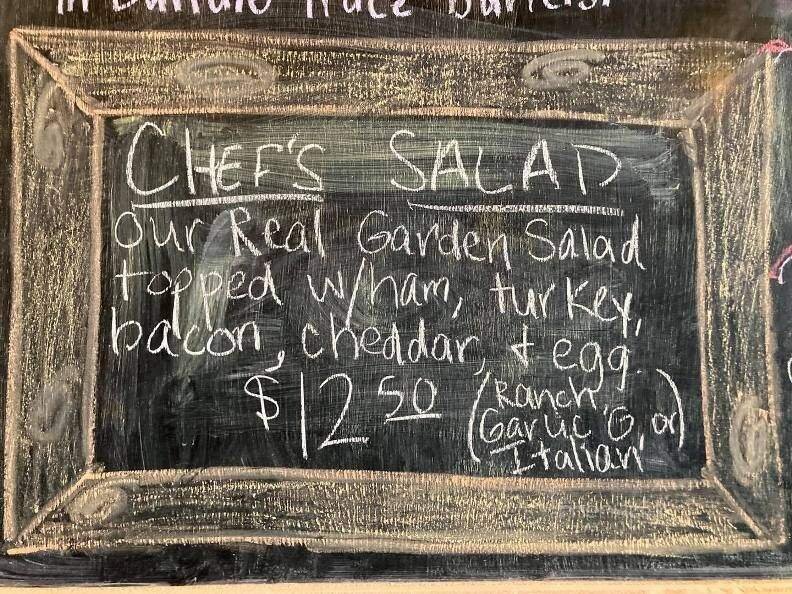 in Buffalo Trace Barrels.
CHEF'S SALAD
Our Real Garden Salad
topped w/ham, turkey,
bacon, cheddar, + egg.
$12 50 (Ranch,
Garlic, G, or)
Italian